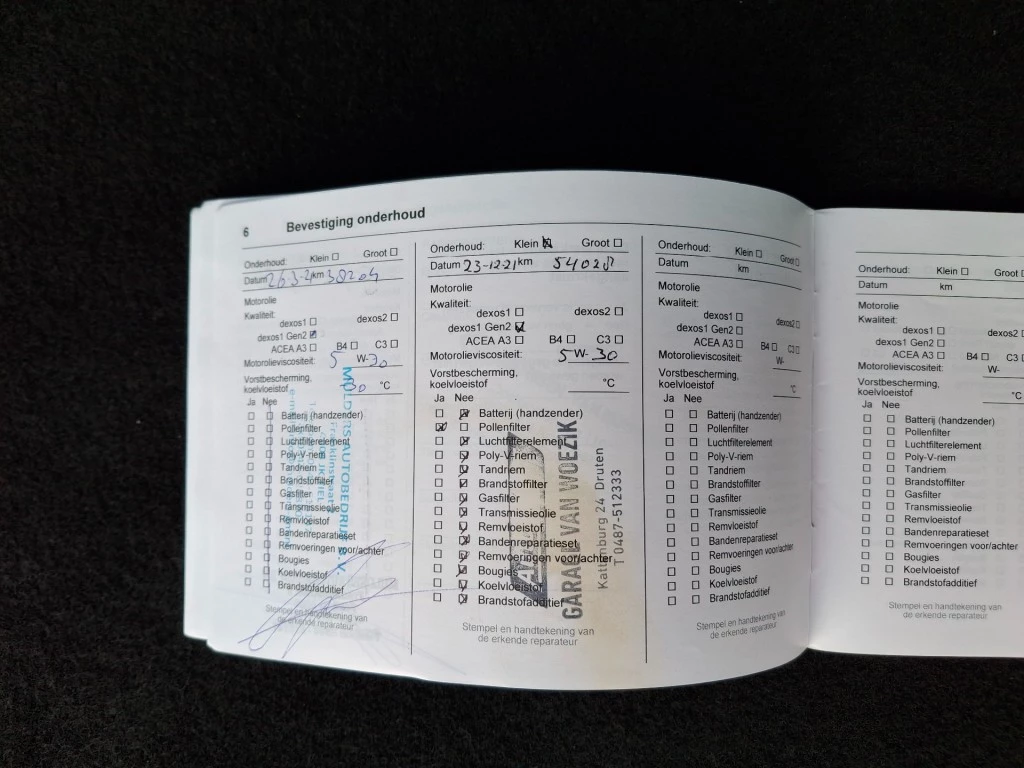 6 Bevestiging onderhoud
Onderhoud: Klein ☐ Groot ☐
Datum 26-3-21 km 38204
Motorolie
Kwaliteit:
dexos1 ☐ dexos2 ☐
dexos1 Gen2 ☑
ACEA A3 ☐ B4 ☐ C3 ☐
Motorolieviscositeit: 5 W-30
Vorstbescherming,
koelvloeistof 30 °C
Ja Nee
☐ ☐ Batterij (handzender)
☐ ☐ Pollenfilter
☐ ☐ Luchtfilterelement
☐ ☐ Poly-V-riem
☐ ☐ Tandriem
☐ ☐ Brandstoffilter
☐ ☐ Gasfilter
☐ ☐ Transmissieolie
☐ ☐ Remvloeistof
☐ ☐ Bandenreparatieset
☐ ☐ Remvoeringen voor/achter
☐ ☐ Bougies
☐ ☐ Koelvloeistof
☐ ☐ Brandstofadditief
AUTOBEDRIJF B.V.
Stempel en handtekening van
de erkende reparateur
Onderhoud: Klein ☒ Groot ☐
Datum 23-12-21 km 54028
Motorolie
Kwaliteit:
dexos1 ☐ dexos2 ☐
dexos1 Gen2 ☑
ACEA A3 ☐ B4 ☐ C3 ☐
Motorolieviscositeit: 5 W-30
Vorstbescherming,
koelvloeistof °C
Ja Nee
☐ ☒ Batterij (handzender)
☒ ☐ Pollenfilter
☐ ☒ Luchtfilterelement
☐ ☒ Poly-V-riem
☐ ☒ Tandriem
☐ ☒ Brandstoffilter
☐ ☒ Gasfilter
☐ ☒ Transmissieolie
☐ ☒ Remvloeistof
☐ ☒ Bandenreparatieset
☐ ☒ Remvoeringen voor/achter
☐ ☒ Bougies
☐ ☒ Koelvloeistof
☐ ☒ Brandstofadditief
GARAGE VAN WOEZIK
Kattenburg 24 Druten
T 0487-512333
Stempel en handtekening van
de erkende reparateur
Onderhoud: Klein ☐ Groot ☐
Datum km
Motorolie
Kwaliteit:
dexos1 ☐ dexos2 ☐
dexos1 Gen2 ☐
ACEA A3 ☐ B4 ☐ C3 ☐
Motorolieviscositeit: W-
Vorstbescherming,
koelvloeistof °C
Ja Nee
☐ ☐ Batterij (handzender)
☐ ☐ Pollenfilter
☐ ☐ Luchtfilterelement
☐ ☐ Poly-V-riem
☐ ☐ Tandriem
☐ ☐ Brandstoffilter
☐ ☐ Gasfilter
☐ ☐ Transmissieolie
☐ ☐ Remvloeistof
☐ ☐ Bandenreparatieset
☐ ☐ Remvoeringen voor/achter
☐ ☐ Bougies
☐ ☐ Koelvloeistof
☐ ☐ Brandstofadditief
Stempel en handtekening van
de erkende reparateur
Onderhoud: Klein ☐ Groot
Datum km
Motorolie
Kwaliteit:
dexos1 ☐ dexos2
dexos1 Gen2 ☐
ACEA A3 ☐ B4 ☐ C3
Motorolieviscositeit: W-
Vorstbescherming,
koelvloeistof °C
Ja Nee
☐ ☐ Batterij (handzender)
☐ ☐ Pollenfilter
☐ ☐ Luchtfilterelement
☐ ☐ Poly-V-riem
☐ ☐ Tandriem
☐ ☐ Brandstoffilter
☐ ☐ Gasfilter
☐ ☐ Transmissieolie
☐ ☐ Remvloeistof
☐ ☐ Bandenreparatieset
☐ ☐ Remvoeringen voor/achter
☐ ☐ Bougies
☐ ☐ Koelvloeistof
☐ ☐ Brandstofadditief
Stempel en handtekening van
de erkende reparateur